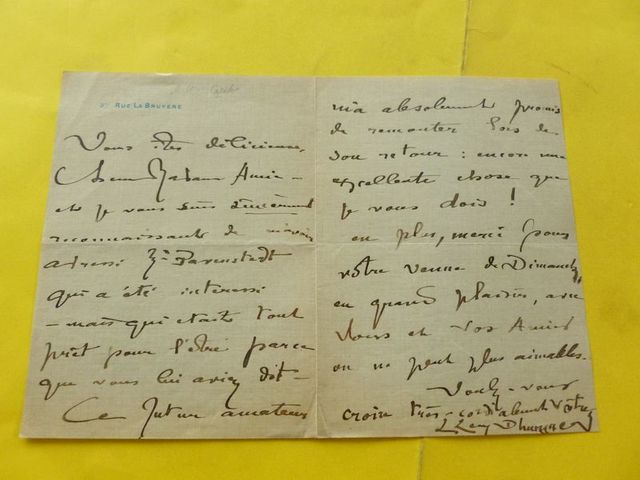 Rue La Bruyère
Vous êtes délicieuse,
Chère Madame Amie –
et je vous suis sincèrement
reconnaissante de m'avoir
adressé Pavenstedt
qui a été intéressé
– mais qui était tout
prêt pour l'être parce
que vous lui aviez dit –
Ce futur amateur
m'a absolument promis
de remonter lors de
son retour : encore une
excellente chose que
je vous dois !
en plus, merci pour
votre venue de Dimanche,
eu grand plaisir, avec
Vous et vos Amies
on ne peut plus aimables.
Voulez-vous
croire très-cordialement Vôtre
L Levy Dhurmer